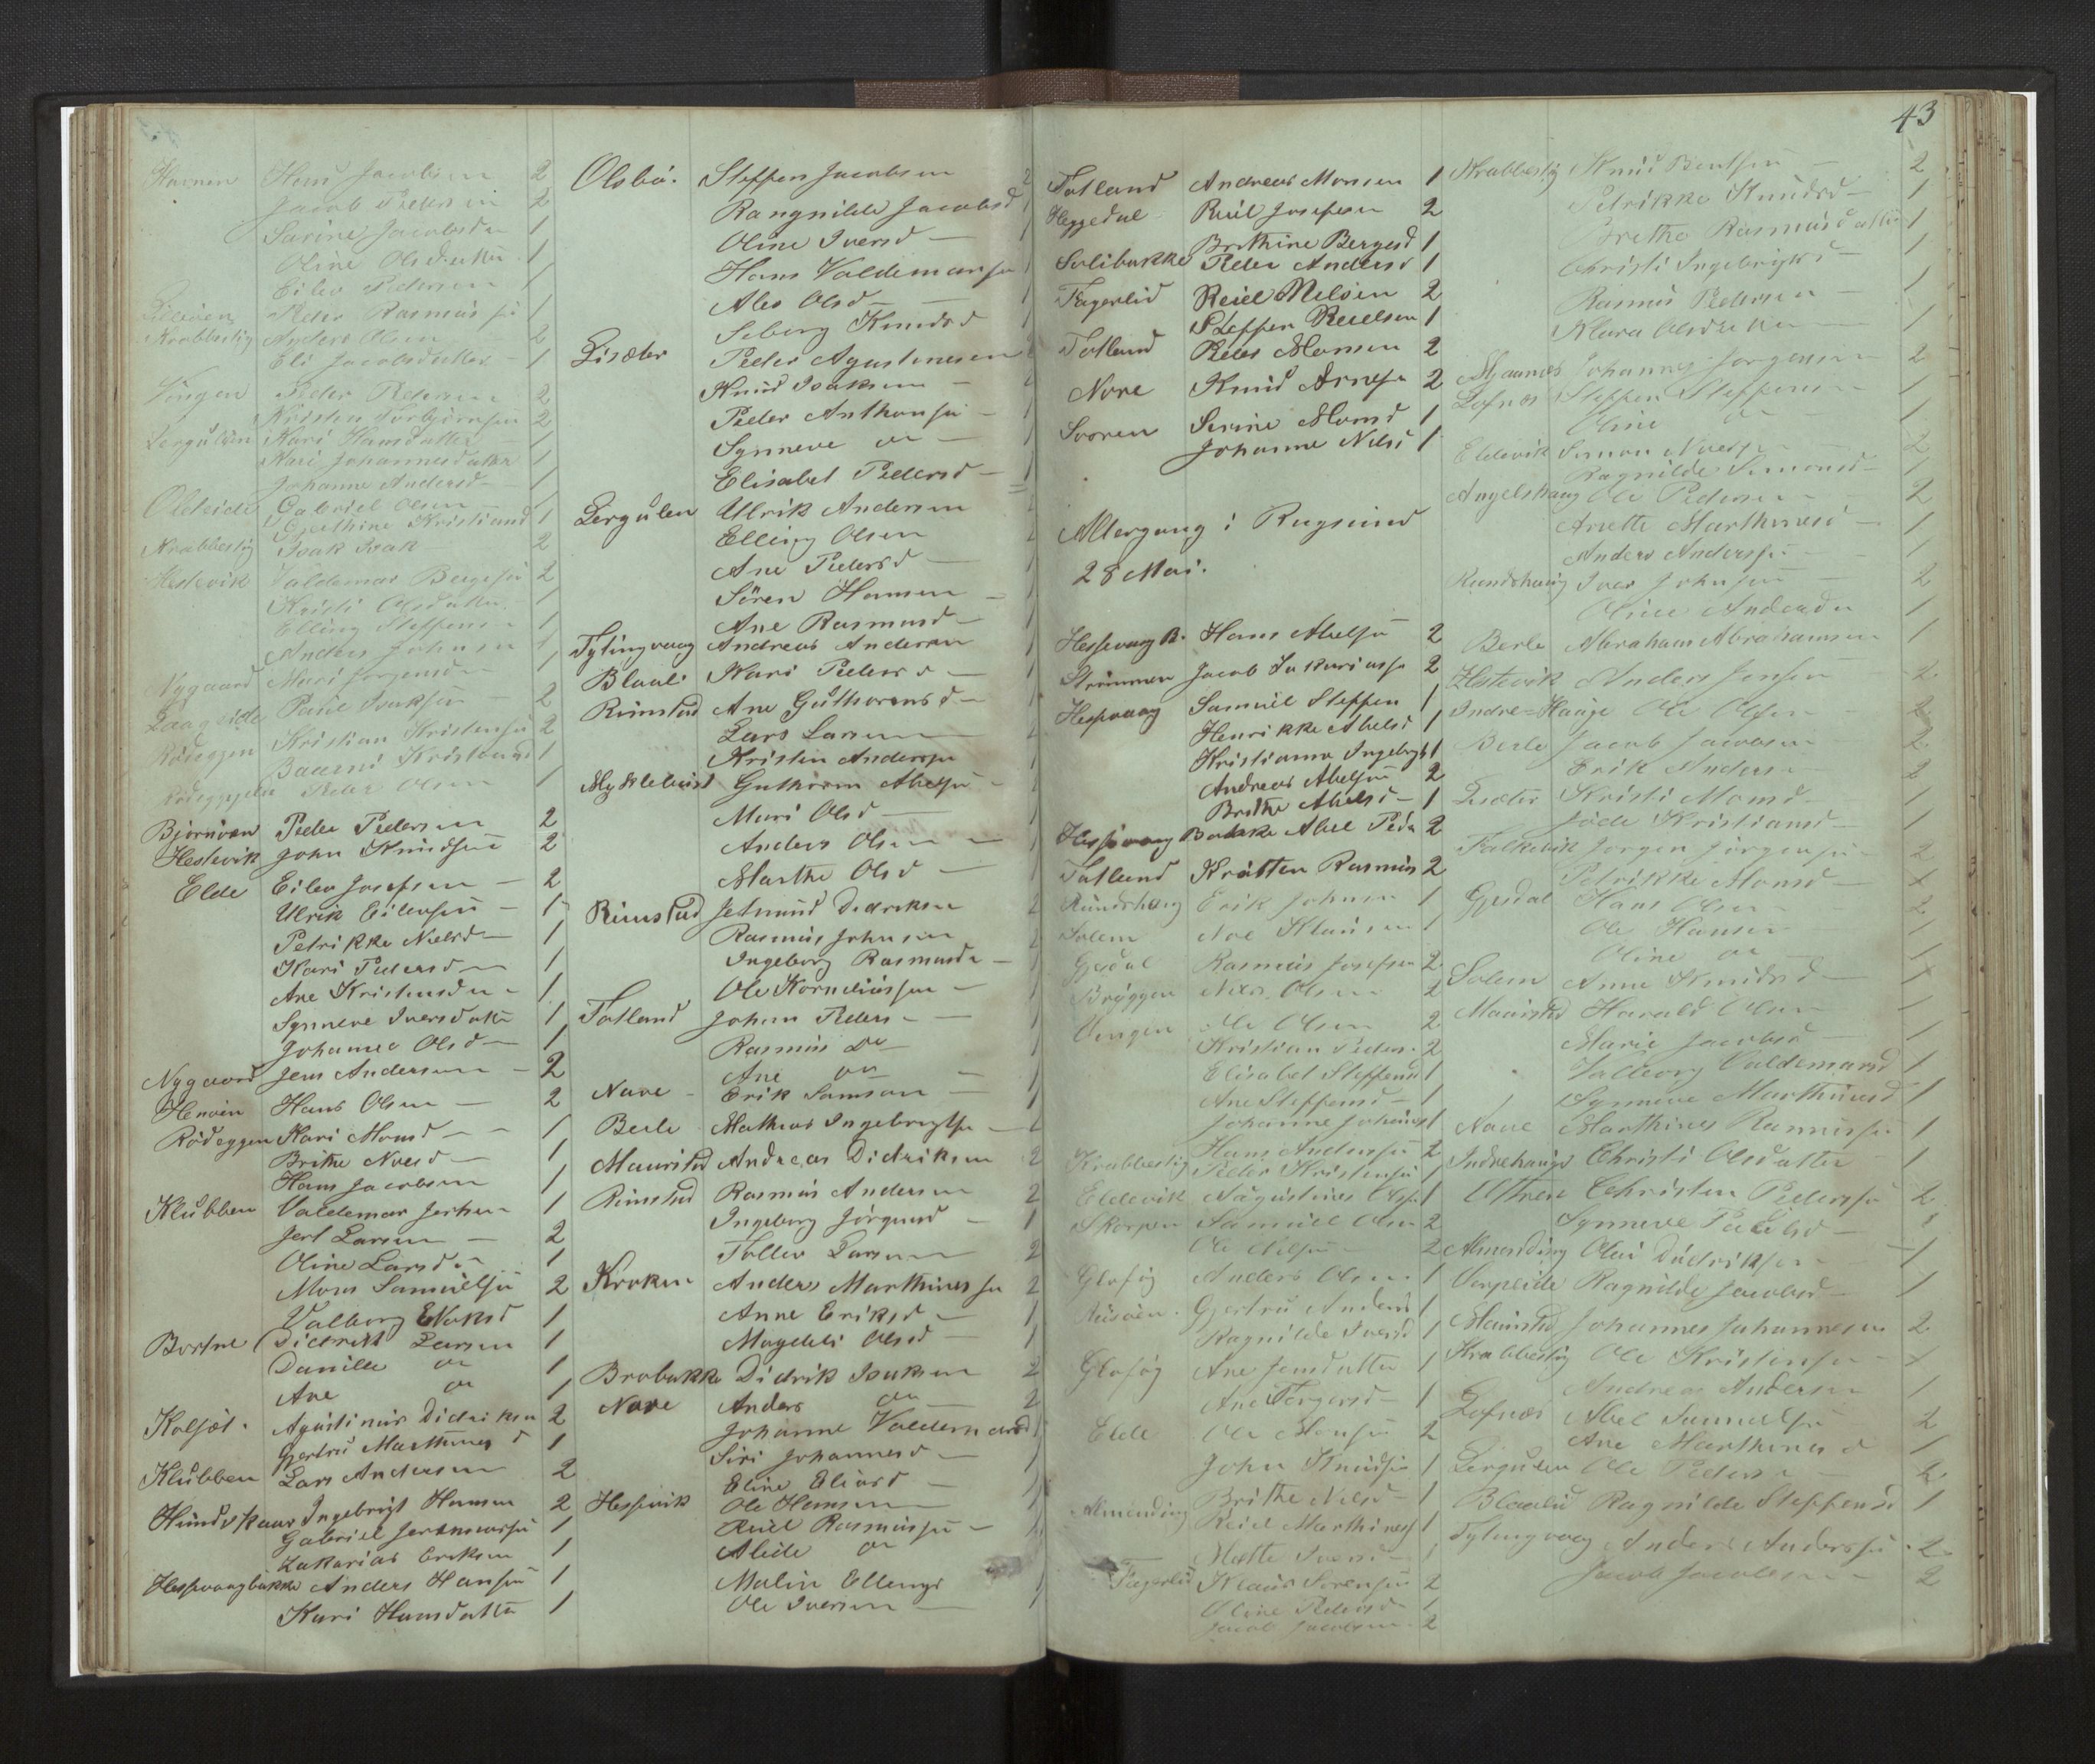 43
Havnen Hans Jacobsen 2
Jacob Pedersen 2
Sarine Jacobsd 1
Oline Olsdatter 1
Eilev Pedersen 1
Peder Rasmussen 1
Krabbestig Anders Olsen 2
Eli Jacobsdatter 1
Vengen Peder Pedersen 2
Kristen Torbjørnsen 2
Lergulen Kari Hansdatter 1
Kari Johannesdatter 1
Johanne Andersd 1
Oldeide Gabriel Olsen 1
Gjerthine Kristiansd 1
Krabbestig Isak Isak 2
Hestevik Valdemar Bergesen 2
Kristi Olsdatter 1
Elling Steffens 1
Anders Johnsen 1
Nygaard Mari Jørgensd 1
Laagside Paul Isaksen 2
Rödeggen Kristian Kristensen 2
Kristensd 1
Rödeggen Peder Olsen 1
Björnöen Peder Pedersen 2
Hestevik John Knudsen 2
Elde Eilev Josefsen 2
Ulrik Eilevsen 1
Petrikke Nielsd 1
Kari Pedersd 1
Ane Kristensd 1
Synneve Iversdatter 1
Johanne Olsd 1
Nygaard Jens Andersen 2
Henöen Hans Olsen 2
Rödeggen Kari Monsd 1
Brithe Noesd 1
Hans Jacobsen 1
Klubben Valdemar Jertsen 1
Jert Larsen 2
Oline Larsd 1
Mons Samuelsen 2
Valborg Isaksd 1
Bortne Didrikk Larsen 1
Danille do 1
Ane do 1
Kolset Agustinus Didriksen 2
Gjertru Marthinesd 1
Klubben Lars Andersen 2
Hundskaar Ingebrigt Hansen 2
Gabriel Jeremiassen 1
Zakarias Eriksen 1
Hessevaagbakke Anders Hansen 1
Kari Hansdatter 1
Olsbö Steffen Jacobsen 2
Rangnilde Jacobsd 1
Oline Iversd 1
Hans Valdemarsen 1
Ales Olsd 1
Seborg Knudsd 1
Lisæter Peder Agustinusen
Knud Isaksen
Peder Anthonsen
Synneve do
Elisabet Pedersd 1
Lergulen Ulrik Andersen
Elling Olsen
Ane Pedersd
Sören Hansen
Ane Rasmusd
Tytingvaag Andreas Andersen
Blaali Kari Pedersd
Rimstad Ane Guthormsd
Lars Larsen
Kristen Andersen
Myklebust Guthorm Abelsen
Mari Olsd
Anders Olsen
Marthe Olsd
Rimstad Jetmund Didriksen
Rasmus Johnsen
Ingeborg Rasmusd
Ole Korneliussen
Totland Johan Peders
Rasmus Do
Ane do
Nave Erik Samson
Berle Mathias Ingebrigtsen
Maurstad Andreas Didriksen 2
Rimstad Rasmus Andersen 2
Ingeborg Jörgensd 1
Tollev Larsen 2
Kroken Anders Marthinussen 2
Anne Eriksd 1
Magdeli Olsd 1
Brobakke Didrik Isaksen 2
Nave Anders do 2
Johanne Valdemarsd 1
Siri Johannesd 1
Eline Eliasd 1
Hessevik Ole Hansen 1
Reiel Rasmussen 1
Alide do
Malin Ellings 1
Ole Iversen 1
Totland Andreas Monsen 1
Heggedal Reiel Josefsen 2
Brethine Bergesd 1
Solibakke Peder Andersd 1
Fagerlid Reiel Nilsen 2
Steffen Reielsen 1
Totland Peder Monsen 2
Nore Knud Arnesen 2
Svoren Serine Monsd 1
Johanne Nilsd 1
Altergang i Rugsund
28 Mai.
Hessevaag B. Hans Abelsen 2
Strömmen Jacob Sakariassen 2
Hessevaag Samuel Steffen 1
Henrikke Abelsd 1
Kristianna Ingebrigts 1
Andreas Abelsen 2
Brithe Abelsd 1
Hessevaag Bakke Abel Peder 2
Totland Kråtten Rasmus 2
Rundehoug Erik Johnsen 1
Solem Noe Klausen 1
Gjesdal Rasmus Josefsen 2
Bryggen Nils Olsen 2
Vengen Ole Olsen 2
Kristian Peders 2
Elisabet Steffensd 1
Ane Steffensd 1
Johanne Johannesd 1
Krabbestig Hans Andersen 2
Peder Kristensen 1
Eldevik Augustinus Olsen 1
Skorpen Samuel Olsen 2
Ole Nilsen 2
Gloföy Anders Olsen 1
Gjertru Andersd 1
Ragnilde Iversd 1
Gloföy Ane Jensdatter 1
Ane Torgersd 1
Elde Ole Monsen 2
John Knudsen 1
Almending Brithe Nilsd 1
Reiel Marthinussen 1
Mette Iversd 1
Fagerlid Klaus Sörensen 2
Oline Pedersd 1
Jacob Jacobsen 2
Krabbestig Knud Bentsen 2
Petrikke Knudsd 1
Brethe Rasmusdatter 1
Christi Ingebrigtsd 1
Rasmus Pedersen 1
Klara Olsdatter 1
Johannes Jørgensen 2
Lofnæs Steffen Steffens 1
Oline do 1
Eldevik Simon Noesen 2
Ragnilde Simonsd 1
Angelshaug Ole Pedersen 2
Anette Marthinusd 1
Anders Anderssen 1
Rundehaug Iver Johnsen 2
Oline Andersd 1
Berle Abraham Abrahamsen 1
Hestevik Anders Jensen 2
Indre=Hauge Ole Olsen 2
Berle Jacob Jacobsen 2
Erik Anders 2
Lisæter Kristi Monsd 1
Jöde Kristiansd 1
Falkevik Jørgen Jørgensen 2
Petrikke Monsd
Gjesdal Hans Olsen 2
Ole Hansen 1
Oline do 1
Solem Anne Knudsd
Maurstad Harald Olsen 1
Marie Jacobsd 1
Valborg Valdemarsd 1
Synneve Marthinusd 1
Nave Marthinus Rasmussen 1
Indrehauge Christi Olsdatter 1
Christen Pedersen 2
Synneve Paulsd 1
Almending Oluf Didriksen 1
Vorpeide Ragnilde Jacobsd 1
Maurstad Johannes Johannesen 2
Krabbestig Ole Kristensen
Andreas Andersen 1
Lofnæs Abel Samuelsen 2
Ane Marthinusd 1
Lergulen Ole Pedersen 2
Blaalid Ragnilde Steffensd 1
Tytingvaag Anders Anderssen 2
Jacob Jacobsen 2